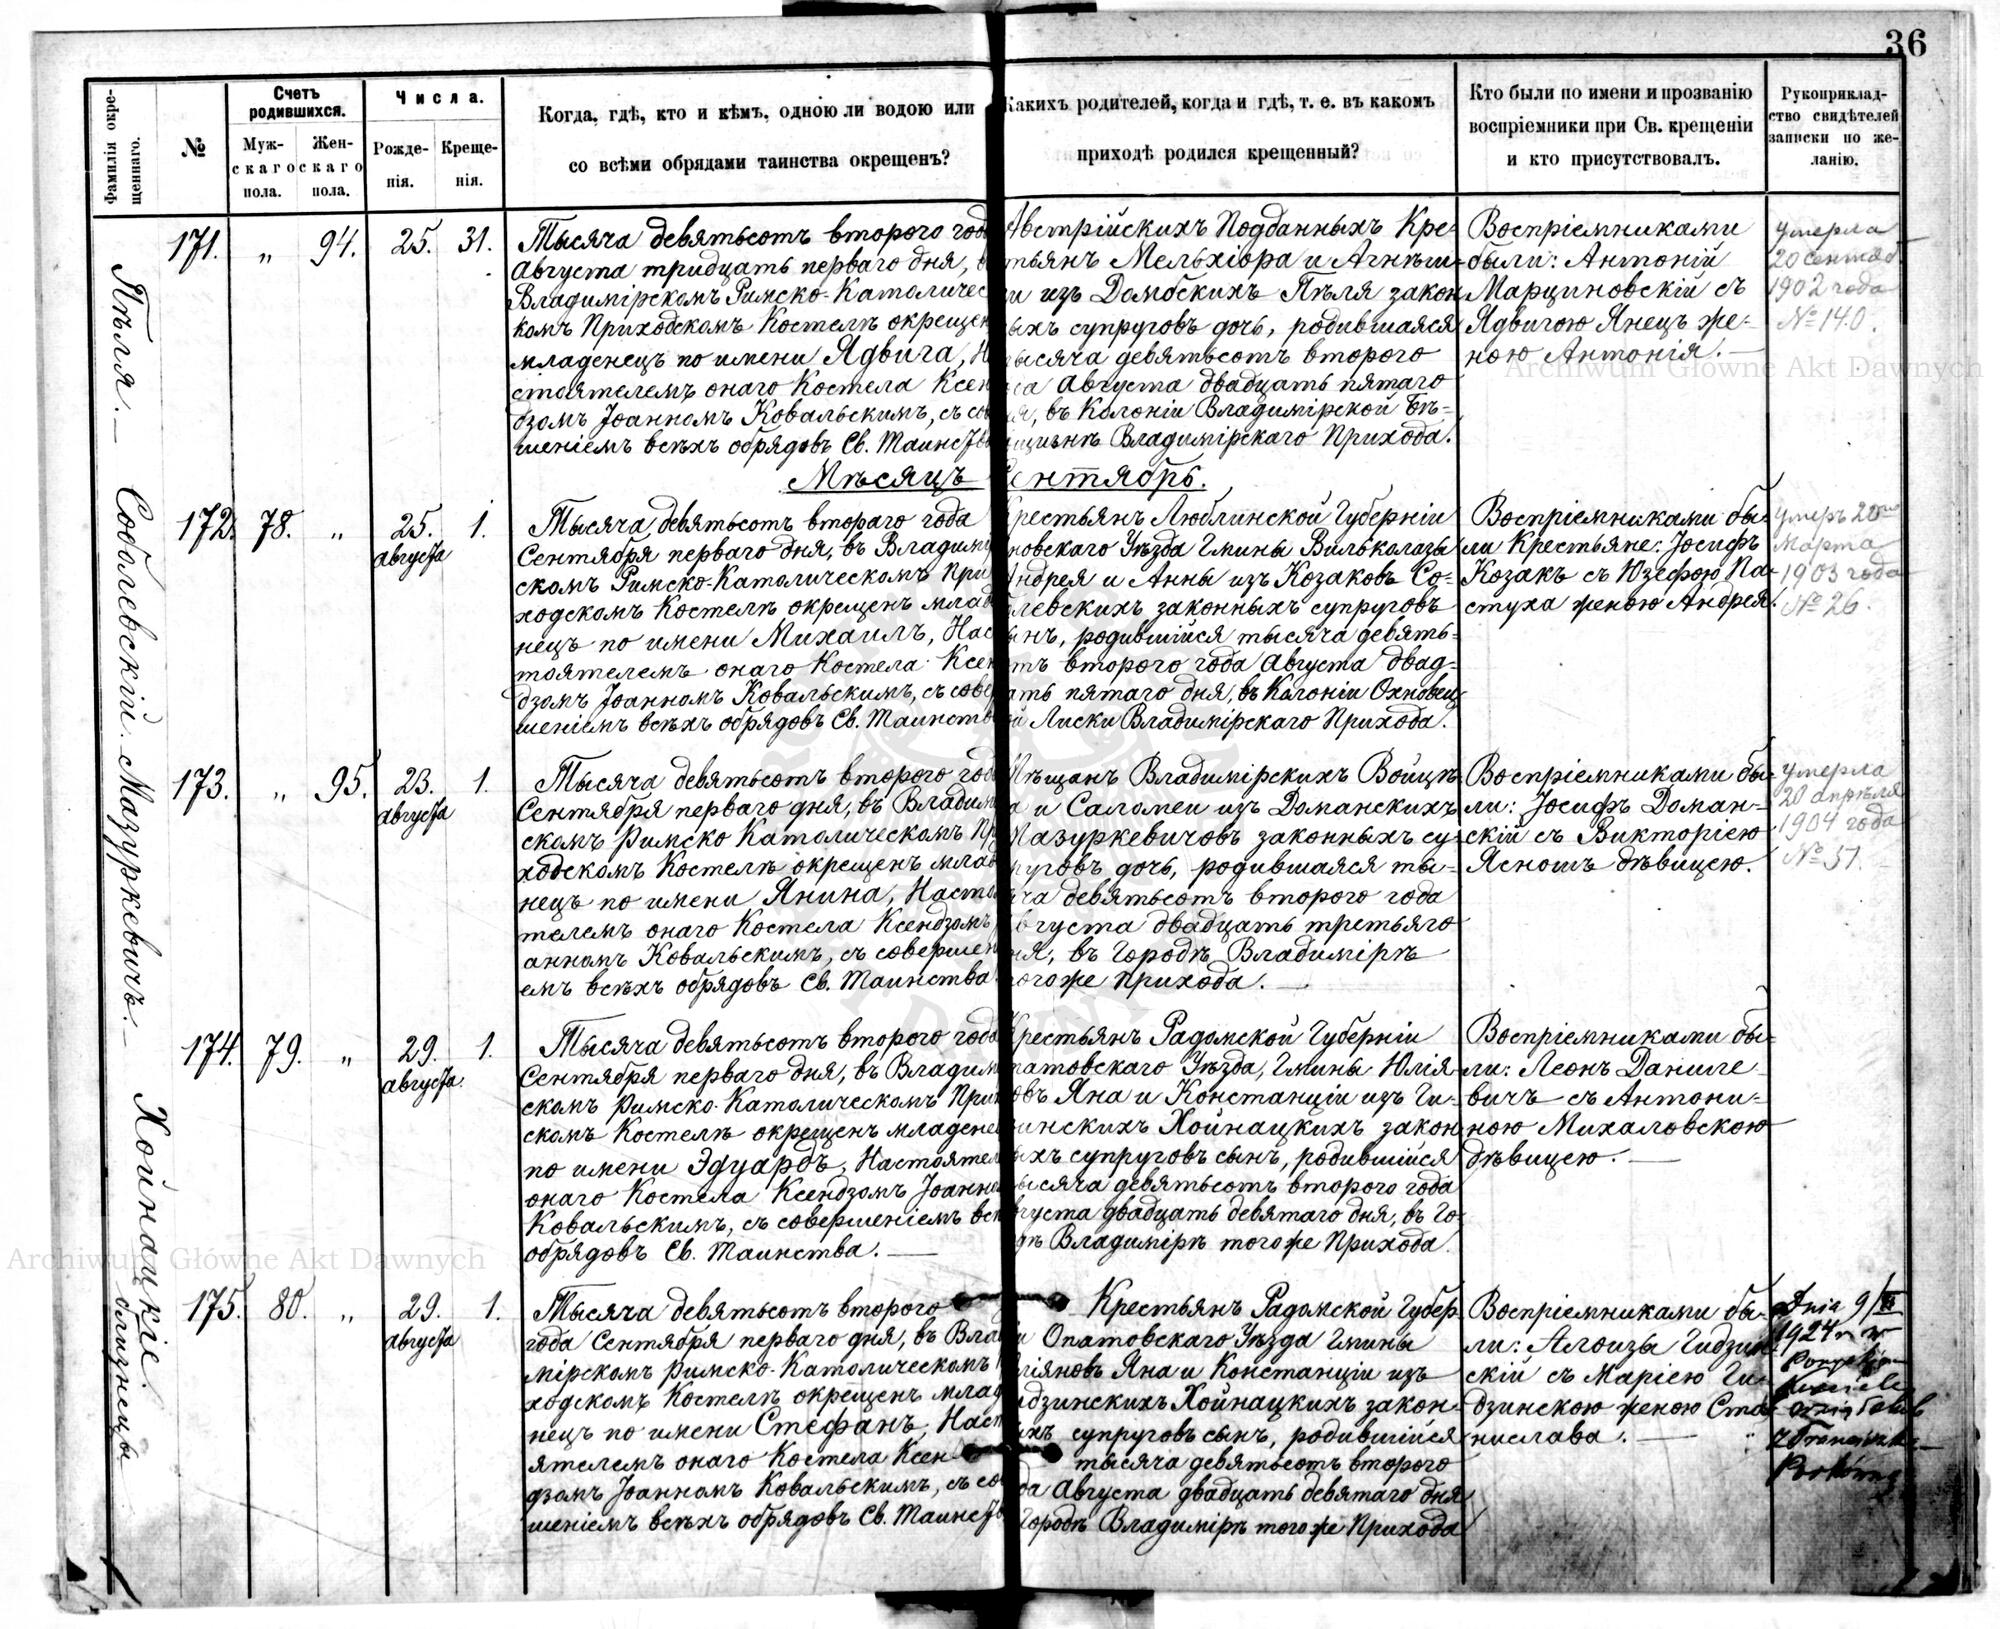 36
Фамилія окрещеннаго.
№
Счетъ родившихся.
Мужскаго пола.
Женскаго пола.
Числа.
Рожденія.
Крещенія.
Когда, гдѣ, кто и кѣмъ, одною ли водою или
со всѣми обрядами таинства окрещенъ?
Какихъ родителей, когда и гдѣ, т. е. въ какомъ
приходѣ родился крещенный?
Кто были по имени и прозванію
воспріемники при Св. крещеніи
и кто присутствовалъ.
Рукоприклад-
ство свидѣтелей
записки по же-
ланію.
Пѣля.
171. „ 94. 25. 31.
Тысяча девятьсотъ второго
Августа тридцать перваго дня,
Владимірскомъ Римско-Католичес
комъ Приходскомъ Костелѣ окрещен
младенецъ по имени Ядвига,
стоятелемъ онаго Костела Ксен
дзомъ Іоанномъ Ковальскимъ, съ со
шеніемъ всѣхъ обрядовъ Св.
Австрійскихъ Подданныхъ Кре-
стьянъ Мельхіора и Агнѣш-
ки изъ Домбскихъ Пѣля закон
ыхъ супруговъ дочь, родившаяся
тысяча девятьсотъ второго
Августа двадцать пятаго
въ Колоніи Владимірской
Владимірскаго Прихода.
Воспріемниками
были: Антоній
Марциновскій съ
Ядвигою Янецъ же-
ною Антонія.
Умерла
20 сентяб
1902 года
№ 140.
Мѣсяцъ Сентябрь.
Соболевскій.
172. 78. „ 25. августа 1.
Тысяча девятьсотъ второго года
Сентября перваго дня, въ Владимір
скомъ Римско-Католическомъ При
ходскомъ Костелѣ окрещенъ млад
нецъ по имени Михаилъ, Нас
тоятелемъ онаго Костела Ксен
дзомъ Іоанномъ Ковальскимъ, съ совер
шеніемъ всѣхъ обрядовъ Св. Таинств
Крестьянъ Люблинской Губерніи
новскаго Уѣзда Гмины Вильколазы
Андрея и Анны изъ Козаковъ Со-
левскихъ законныхъ супруговъ
сынъ, родившійся тысяча девять-
сотъ второго года Августа двад-
цать пятаго дня, въ Колоніи
Лиски Владимірскаго Прихода.
Воспріемниками бы-
ли Крестьяне: Іосифъ
Козакъ съ Юзефою Па-
стуха женою Андрея.
Умеръ
Марта
1903 года
№ 26.
Мазуркевичъ.
173. „ 95. 23. августа 1.
Тысяча девятьсотъ второго год
Сентября перваго дня, въ Владимір
скомъ Римско Католическомъ Пр
ходскомъ Костелѣ окрещенъ млад
нецъ по имени Янина, Насто
телемъ онаго Костела Ксендзомъ
анномъ Ковальскимъ, съ совершен
емъ всѣхъ обрядовъ Св. Таинства
Мѣщанъ Владимірскихъ Войцѣ-
ха и Саломеи изъ Доманскихъ
Мазуркевичовъ законныхъ су-
пруговъ дочь, родившаяся ты-
сяча девятьсотъ второго года
Августа двадцать третьяго
дня, въ Городѣ Владимірѣ
тогоже Прихода.
Воспріемниками бы-
ли: Іосифъ Доман-
скій съ Викторіею
Ясношъ дѣвицею.
Умерла
20 апрѣля
1904 года
№ 51.
Хойнацкіе. близнецы
174. 79. „ 29. августа. 1.
Тысяча девятьсотъ второго год
Сентября перваго дня, въ Владим
скомъ Римско-Католическомъ При
скомъ Костелѣ окрещенъ младене
по имени Эдуардъ, Настоятел
онаго Костела Ксендзомъ Іоанно
Ковальскимъ, съ совершеніемъ всѣ
обрядовъ Св. Таинства.
Крестьянъ Радомской Губерніи
патовскаго Уѣзда, Гмины Юлія-
новъ Яна и Констанціи изъ Ги-
дзинскихъ Хойнацкихъ закон
ныхъ супруговъ сынъ, родившійся
тысяча девятьсотъ второго года
Августа двадцать девятаго дня, въ Го-
родѣ Владимірѣ тогоже Прихода.
Воспріемниками бы-
ли: Леонъ Даниле
вичъ съ Антони-
ною Михаловскою
дѣвицею.
175. 80. „ 29. августа 1.
Тысяча девятьсотъ второго
года Сентября перваго дня, въ Влад
мірскомъ Римско-Католическомъ
ходскомъ Костелѣ окрещенъ млад
нецъ по имени Стефанъ, Наст
ятелемъ онаго Костела Ксен
дзомъ Іоанномъ Ковальскимъ, съ со
шеніемъ всѣхъ обрядовъ Св.
Крестьянъ Радомской Губер-
ніи Опатовскаго Уѣзда Гмины
Юліяновъ Яна и Констанціи изъ
Гидзинскихъ Хойнацкихъ закон-
ныхъ супруговъ сынъ, родившійся
тысяча девятьсотъ второго
года Августа двадцать девятаго дня
Городѣ Владимірѣ тогоже Прихода
Воспріемниками бы-
ли: Алоизы Гидзин
скій съ Маріею Ги-
дзинскою женою Ста
нислава.
dnia 9/
1924 r w
Kościele
z Franciszką
Archiwum Główne Akt Dawnych
Archiwum Główne Akt Dawnych